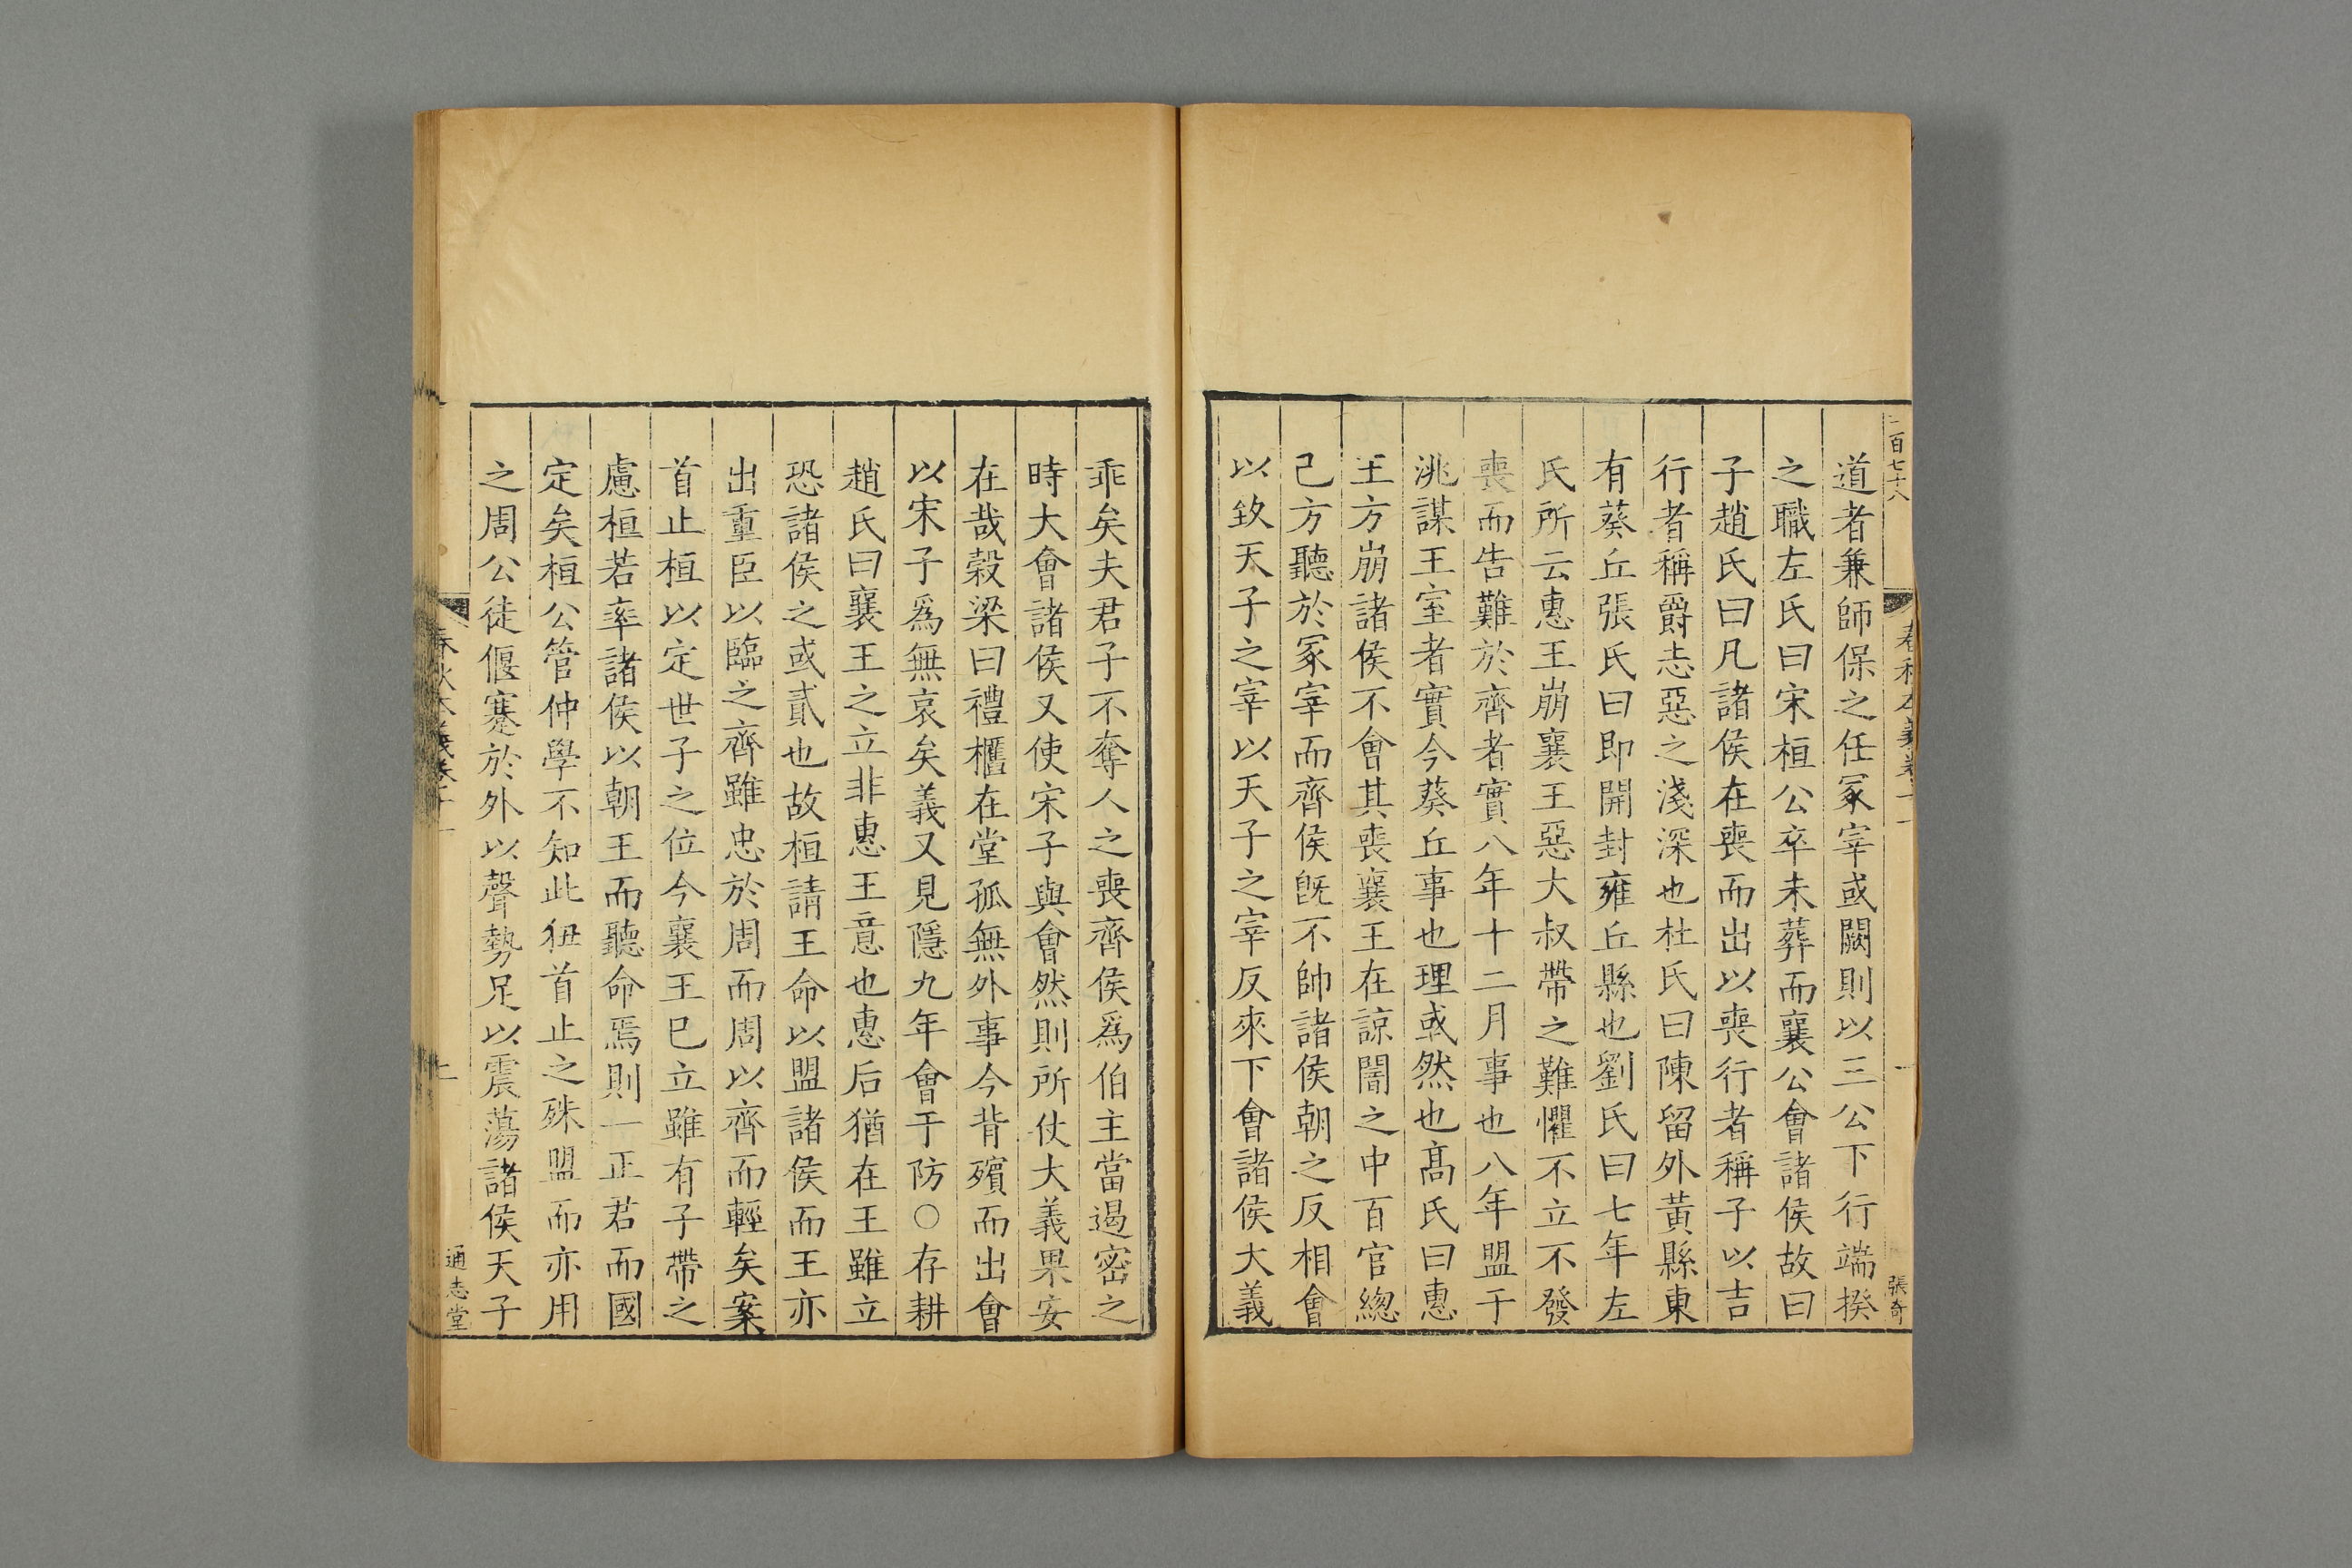 二百七十八
春秋本義卷十一
一
張奇
道者兼師保之任冢宰或闕則以三公下行端揆
之職左氏曰宋桓公卒未葬而襄公會諸侯故曰
子趙氏曰凡諸侯在喪而出以喪行者稱子以吉
行者稱爵志惡之淺深也杜氏曰陳留外黃縣東
有葵丘張氏曰即開封雍丘縣也劉氏曰七年左
氏所云惠王崩襄王惡大叔帶之難懼不立不發
喪而告難於齊者實八年十二月事也八年盟于
洮謀王室者實今葵丘事也理或然也髙氏曰惠
王方崩諸侯不會其喪襄王在諒闇之中百官緫
己方聽於冢宰而齊侯旣不帥諸侯朝之反相會
以致天子之宰以天子之宰反來下會諸侯大義
乖矣夫君子不奪人之喪齊侯爲伯主當遏密之
時大會諸侯又使宋子與會然則所仗大義果安
在哉穀梁曰禮柩在堂孤無外事今背殯而出會
以宋子爲無哀矣義又見隱九年會于防○存耕
趙氏曰襄王之立非惠王意也惠后猶在王雖立
恐諸侯之或貳也故桓請王命以盟諸侯而王亦
出重臣以臨之齊雖忠於周而周以齊而輕矣案
首止桓以定世子之位今襄王巳立雖有子帶之
慮桓若率諸侯以朝王而聽命焉則一正君而國
定矣桓公管仲學不知此狃首止之殊盟而亦用
之周公徒偃蹇於外以聲勢足以震蕩諸侯天子
春秋本義卷十一
通志堂